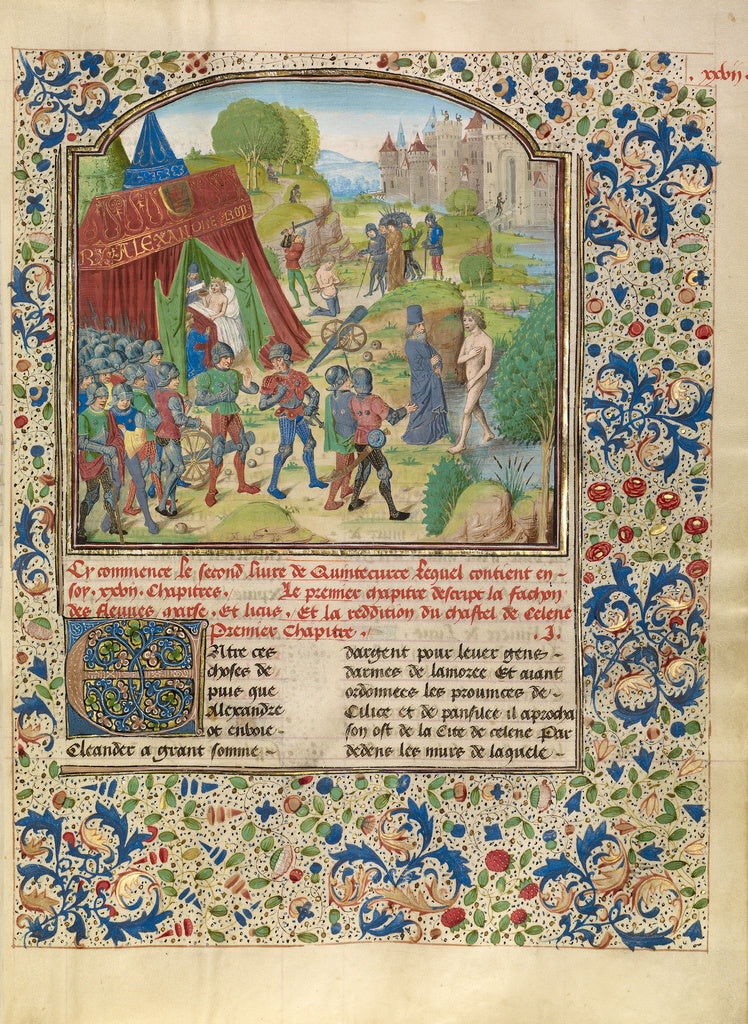 . xxvij .
REX ALEXANDRE
Cy commence le second livre de Quintecurce lequel contient en-
soy . xxvij . Chapitres . Le premier chapitre descript la fachon
des fleuves marse . Et licus . Et la reddicion du chastel de Celene
Premier Chapitre . .I.
Entre ces
choses de
puis que
Alexandre
ot enuoie -
Cleander a grant somme -
dargent pour leuer gens -
darmes de lamoree Et aiant
ordonnees les prouinces de -
Cilice et de panfilee il aprocha
son ost de la Cite de celene Par
dedens les murs de laquele -